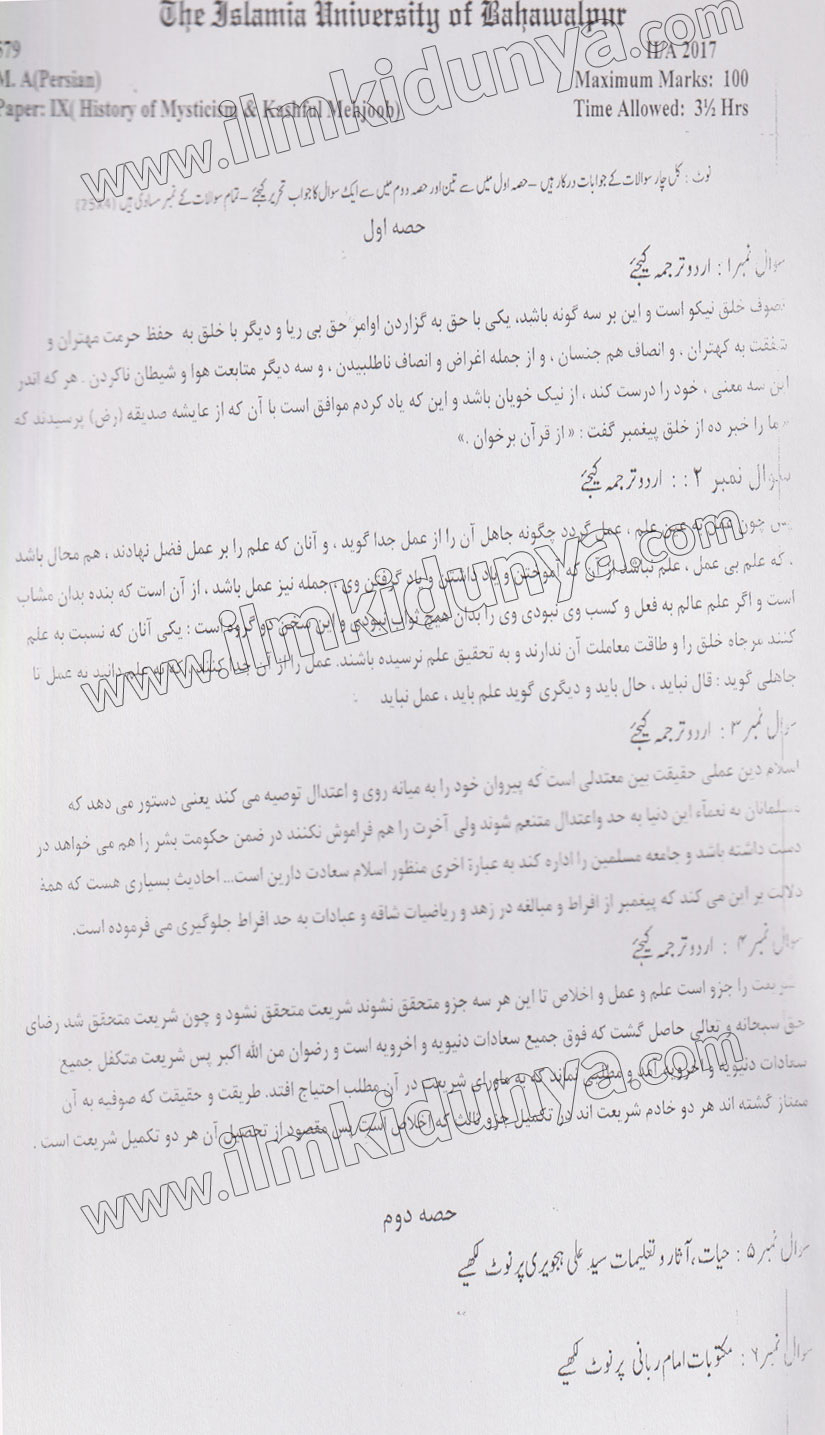 The Islamia University of Bahawalpur
II/A 2017
M. A(Persian)
Maximum Marks: 100
Paper: IX( History of Mysticism & Kashful Mehjoob)
Time Allowed: 3½ Hrs
نوٹ : کل چار سوالات کے جوابات درکار ہیں – حصہ اول میں سے تین اور حصہ دوم میں سے ایک سوال کا جواب تحریر کیجئے – تمام سوالات کے نمبر مساوی ہیں (25x4)
حصہ اول
سوال نمبر ۱ : اردو ترجمہ کیجئے
تصوف خلق نیکو است و این بر سه گونه باشد، یکی با حق به گزاردن اوامر حق بی ریا و دیگر با خلق به حفظ حرمت مهتران و
شفقت به کهتران ، و انصاف هم جنسان ، و از جمله اغراض و انصاف ناطلبیدن ، و سه دیگر متابعت هوا و شیطان ناکردن . هر که اندر
این سه معنی ، خود را درست کند ، از نیک خویان باشد و این که یاد کردم موافق است با آن که از عایشه صدیقه (رض) پرسیدند که
ما را خبر ده از خلق پیغمبر گفت : « از قرآن برخوان .»
سوال نمبر ۲ : : اردو ترجمہ کیجئے
پس چون عمل به عین علم ، عمل گردد چگونه جاهل آن را از عمل جدا گوید ، و آنان که علم را بر عمل فضل نهادند ، هم محال باشد
. که علم بی عمل ، علم نباشد از آن که آموختن و یاد داشتن و یاد گرفتن وی ، جمله نیز عمل باشد ، از آن است که بنده بدان مشاب
است و اگر علم عالم به فعل و کسب وی نبودی وی را بدان هیچ ثواب نبودی و این سخن دو گروه است : یکی آنان که نسبت به علم
کنند مرجاه خلق را و طاقت معاملت آن ندارند و به تحقیق علم نرسیده باشند. عمل را از آن جدا کنند ، که نه علم دانید نه عمل تا
جاهلی گوید : قال نباید ، حال باید و دیگری گوید علم باید ، عمل نباید
سوال نمبر ۳ : اردو ترجمہ کیجئے
اسلام دین عملی حقیقت بین معتدلی است که پیروان خود را به میانه روی و اعتدال توصیه می کند یعنی دستور می دهد که
مسلمانان به نعمآء این دنیا به حد واعتدال متنعم شوند ولی آخرت را هم فراموش نکنند در ضمن حکومت بشر را هم می خواهد در
دست داشته باشد و جامعه مسلمین را اداره کند به عبارة اخری منظور اسلام سعادت دارین است... احادیث بسیاری هست که همۀ
دلالت بر این می کند که پیغمبر از افراط و مبالغه در زهد و ریاضیات شاقه و عبادات به حد افراط جلوگیری می فرموده است.
سوال نمبر ۴ : اردو ترجمہ کیجئے
شریعت را جزو است علم و عمل و اخلاص تا این هر سه جزو متحقق نشوند شریعت متحقق نشود و چون شریعت متحقق شد رضای
حق سبحانه و تعالی حاصل گشت که فوق جمیع سعادات دنیویه و اخرویه است و رضوان من الله اکبر پس شریعت متکفل جمیع
سعادات دنیویه و اخرویه آمد و مطلبی نماند که به ماورای شریعت در آن مطلب احتیاج افتد. طریقت و حقیقت که صوفیه به آن
ممتاز گشته اند هر دو خادم شریعت اند در تکمیل جزو ثالث که اخلاص است پس مقصود از تحصیل آن هر دو تکمیل شریعت است .
حصہ دوم
سوال نمبر ۵ : حیات ، آثار و تعلیمات سید علی ہجویری پر نوٹ لکھیے
سوال نمبر ۶ : مکتوبات امام ربانی پر نوٹ لکھیے
www.ilmkidunya.com
www.ilmkidunya.com
www.ilmkidunya.com